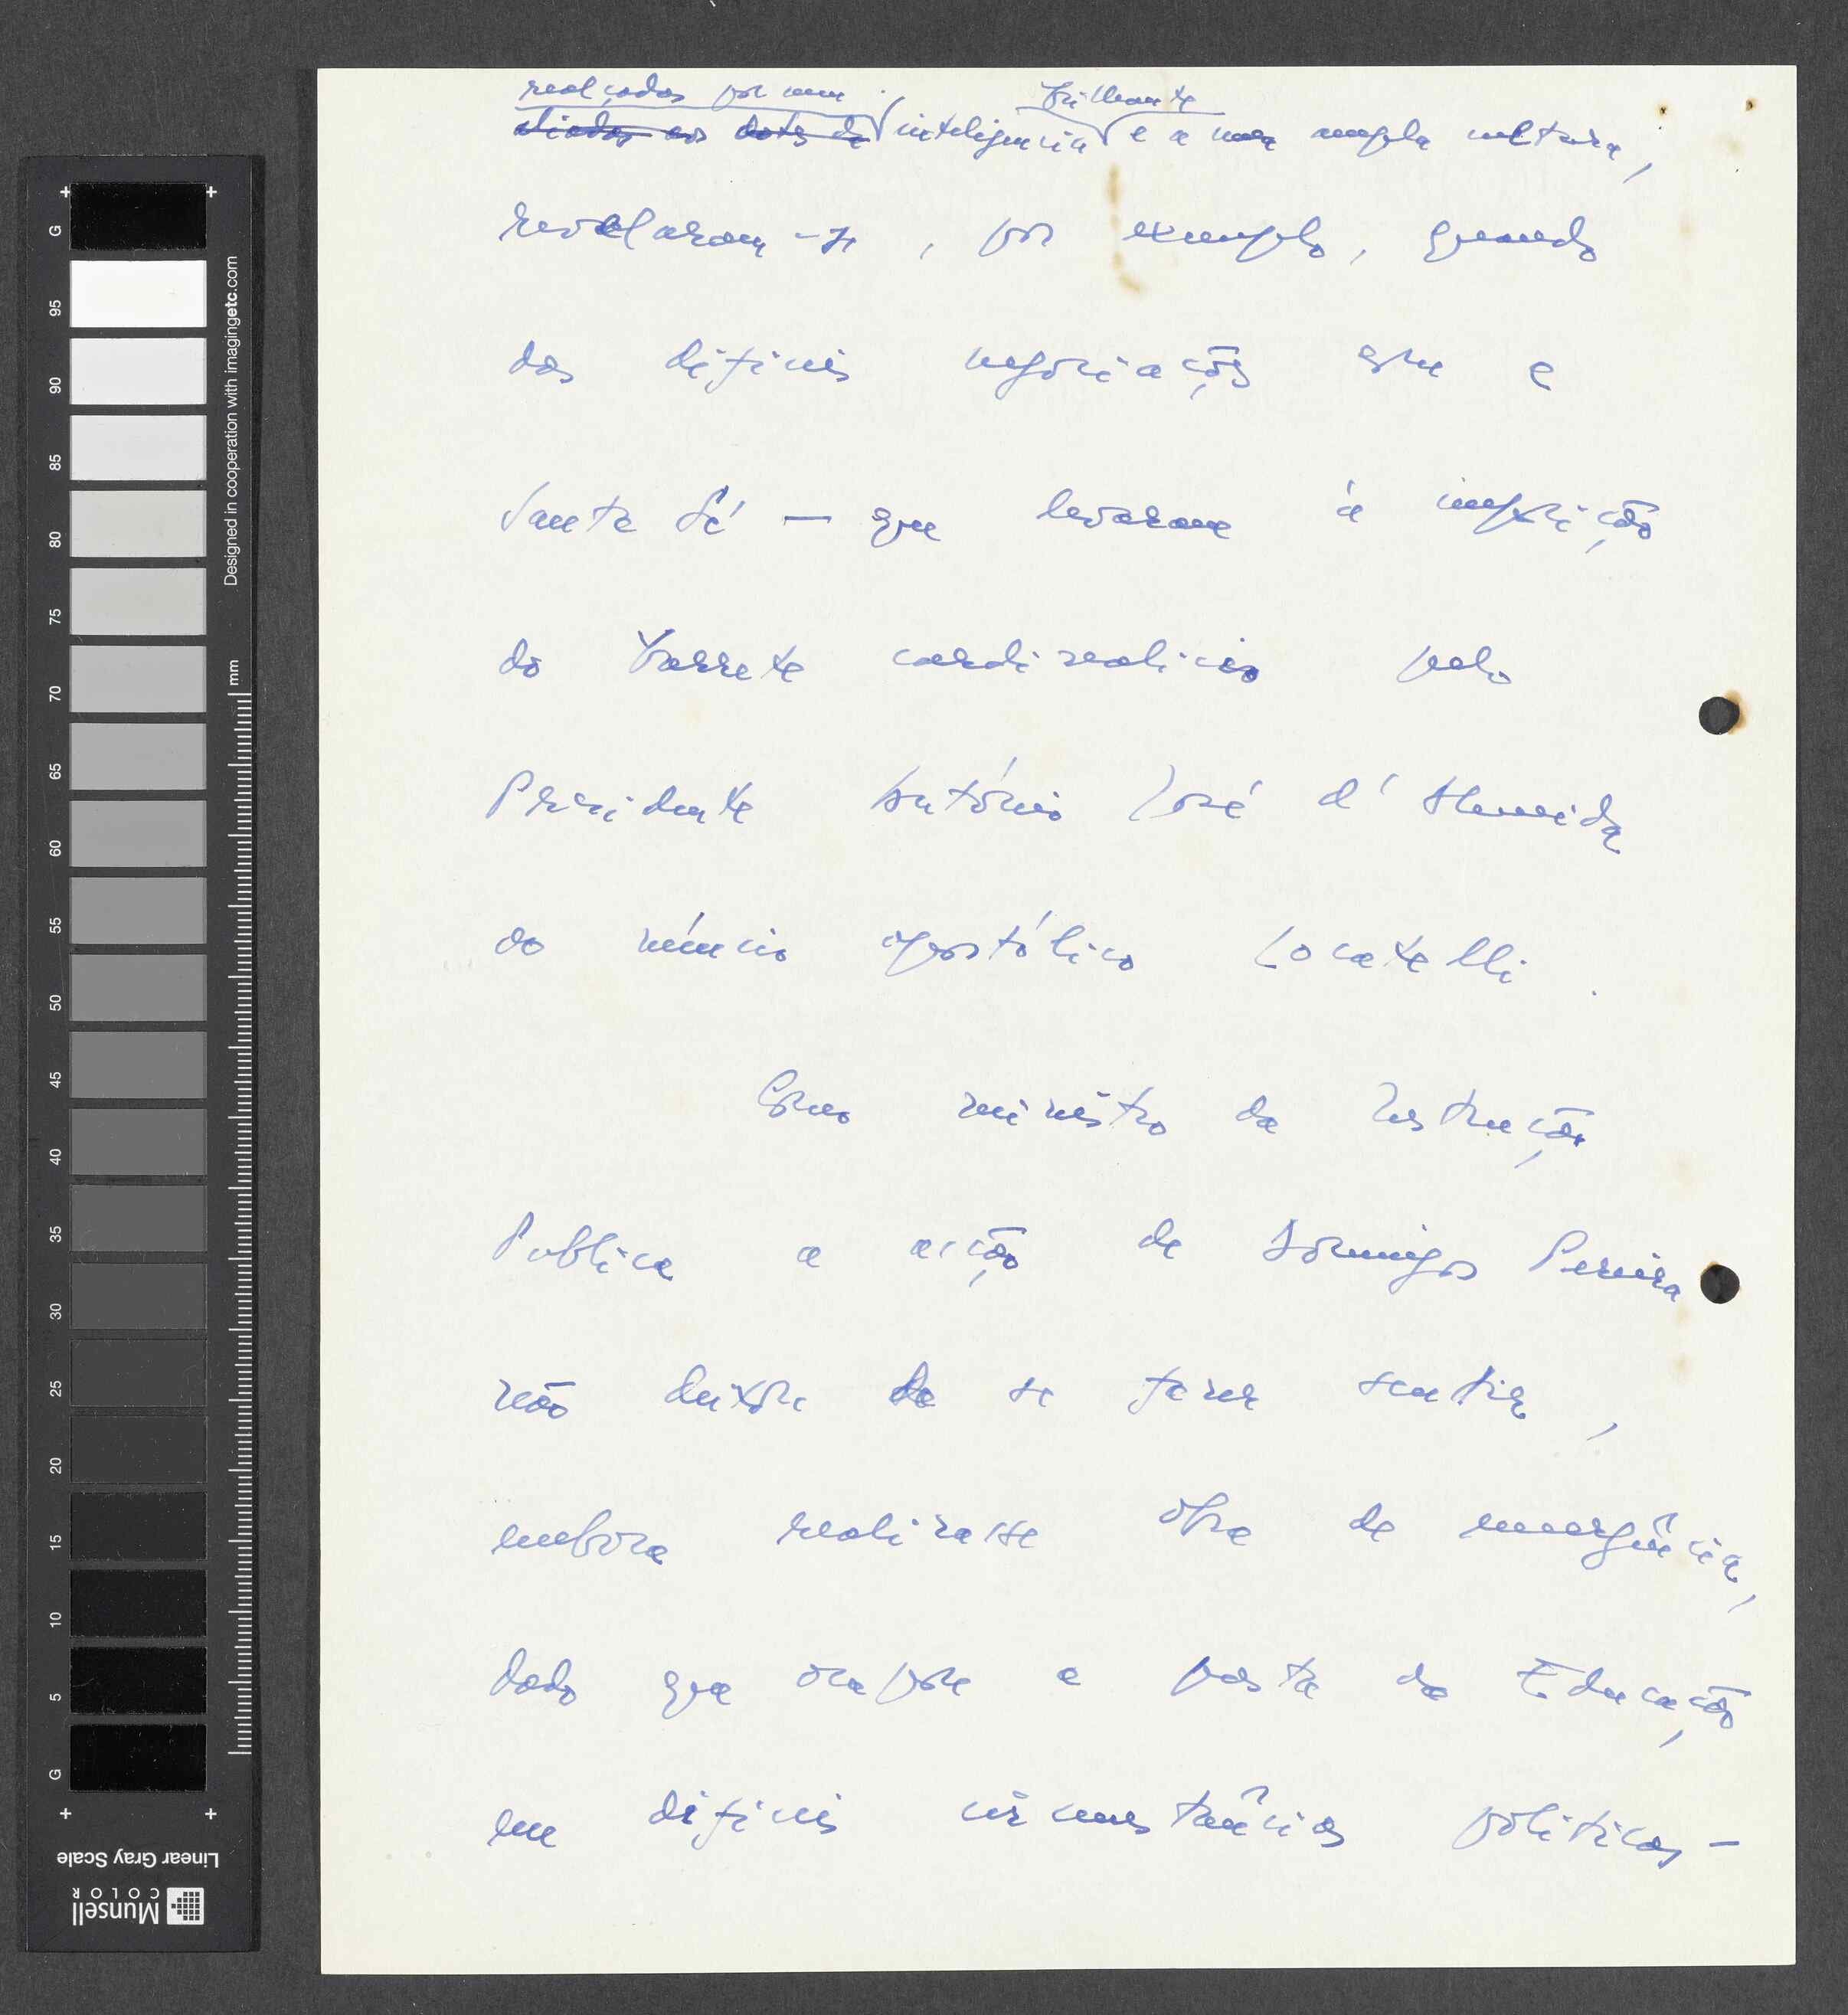 realçados por uma brilhante
aliados aos dotes de inteligencia e a uma ampla cultura,
revelaram-se, por exemplo, quando
das dificeis negociações com a
Santa Sé — que levaram à imposição
do barrete cardinalicio pelo
Presidente António José d'Almeida
ao núncio apostólico Locatelli.
Como ministro da Instrução
Publica a acção de Domingos Pereira
não deixou de se fazer sentir,
embora realizasse obra de emergência,
dado que ocupou a pasta da Educação
em dificeis circunstâncias politicas -
G
95
90
85
80
75
70
65
60
55
50
45
40
35
30
25
20
15
10
5
G
mm
Designed in cooperation with imagingetc.com
Linear Gray Scale
Munsell
COLOR